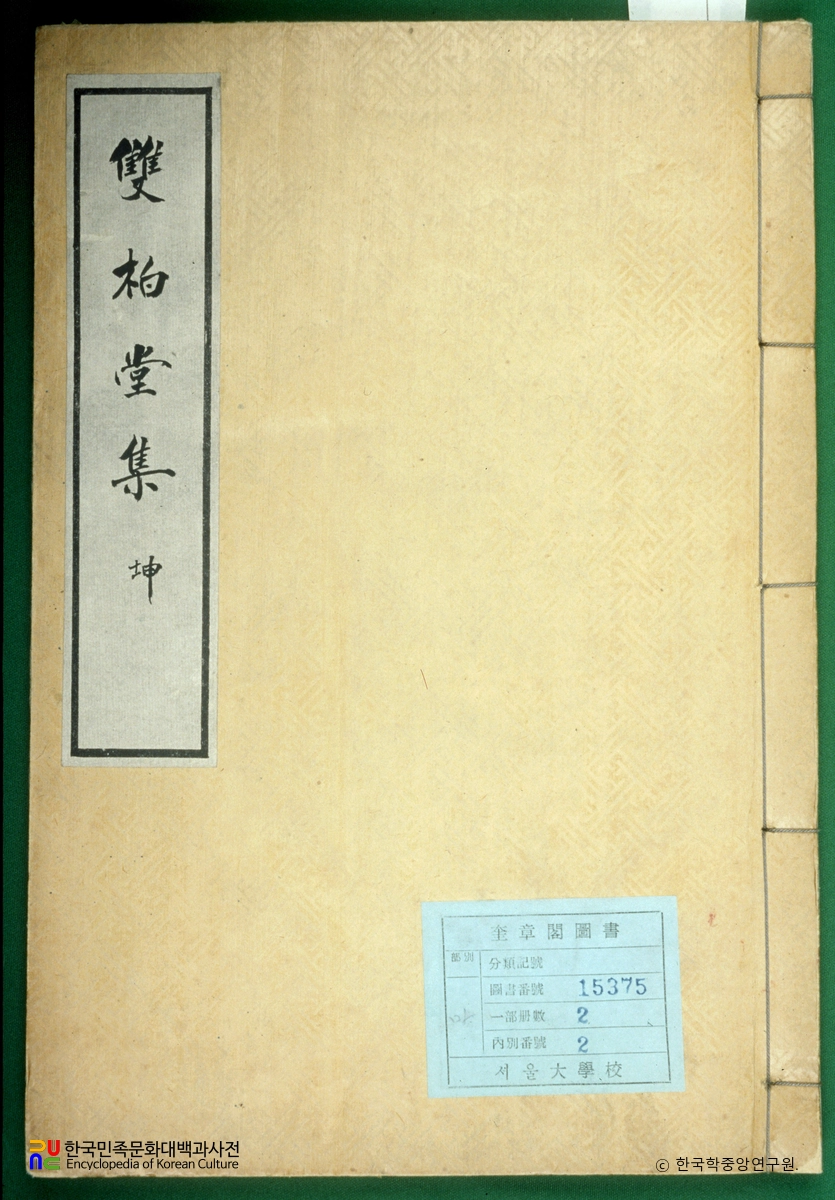 雙柏堂集 坤
奎章閣圖書
部別
分類記號
圖書番號 15375
一部册數 2
內別番號 2
서울大學校
한국민족문화대백과사전
Encyclopedia of Korean Culture
© 한국학중앙연구원.